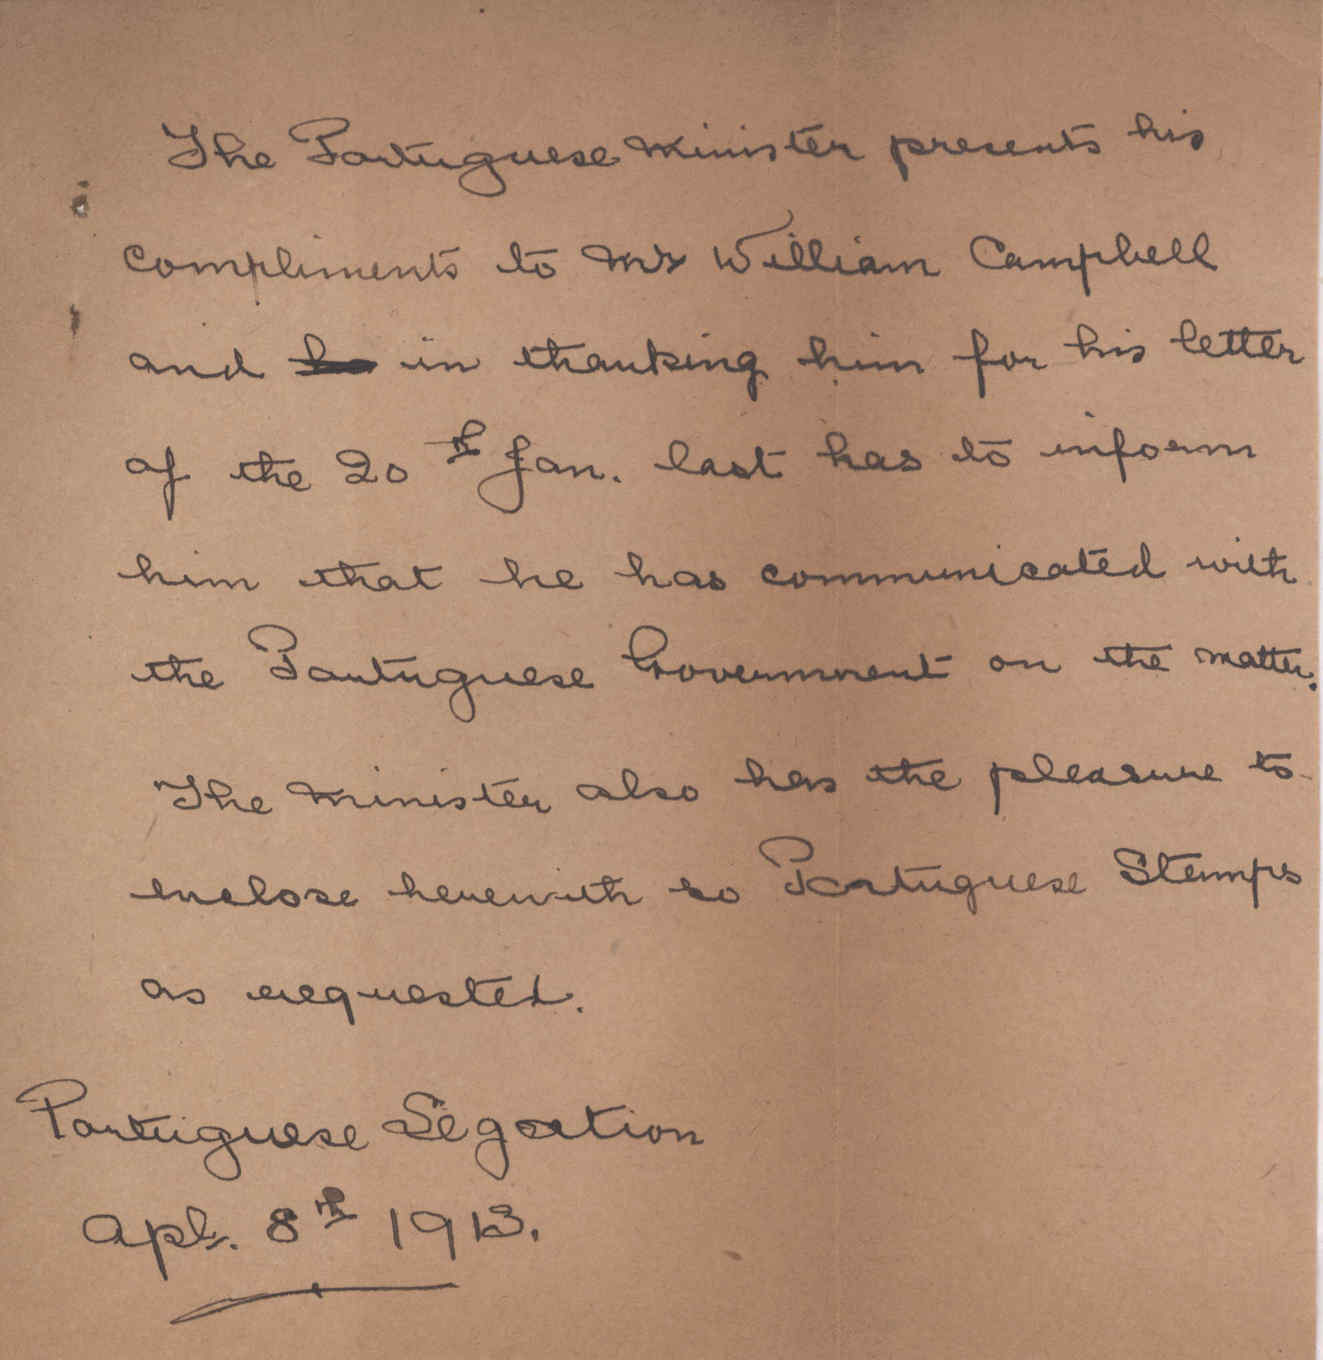 The Portuguese Minister presents his
compliments to Mr William Campbell
and in thanking him for his letter
of the 20th Jan. last has to inform
him that he has communicated with
the Portuguese Government on the matter.
The Minister also has the pleasure to
enclose herewith so Portuguese Stamps
as requested.
Portuguese Legation
Apl. 8th 1913.